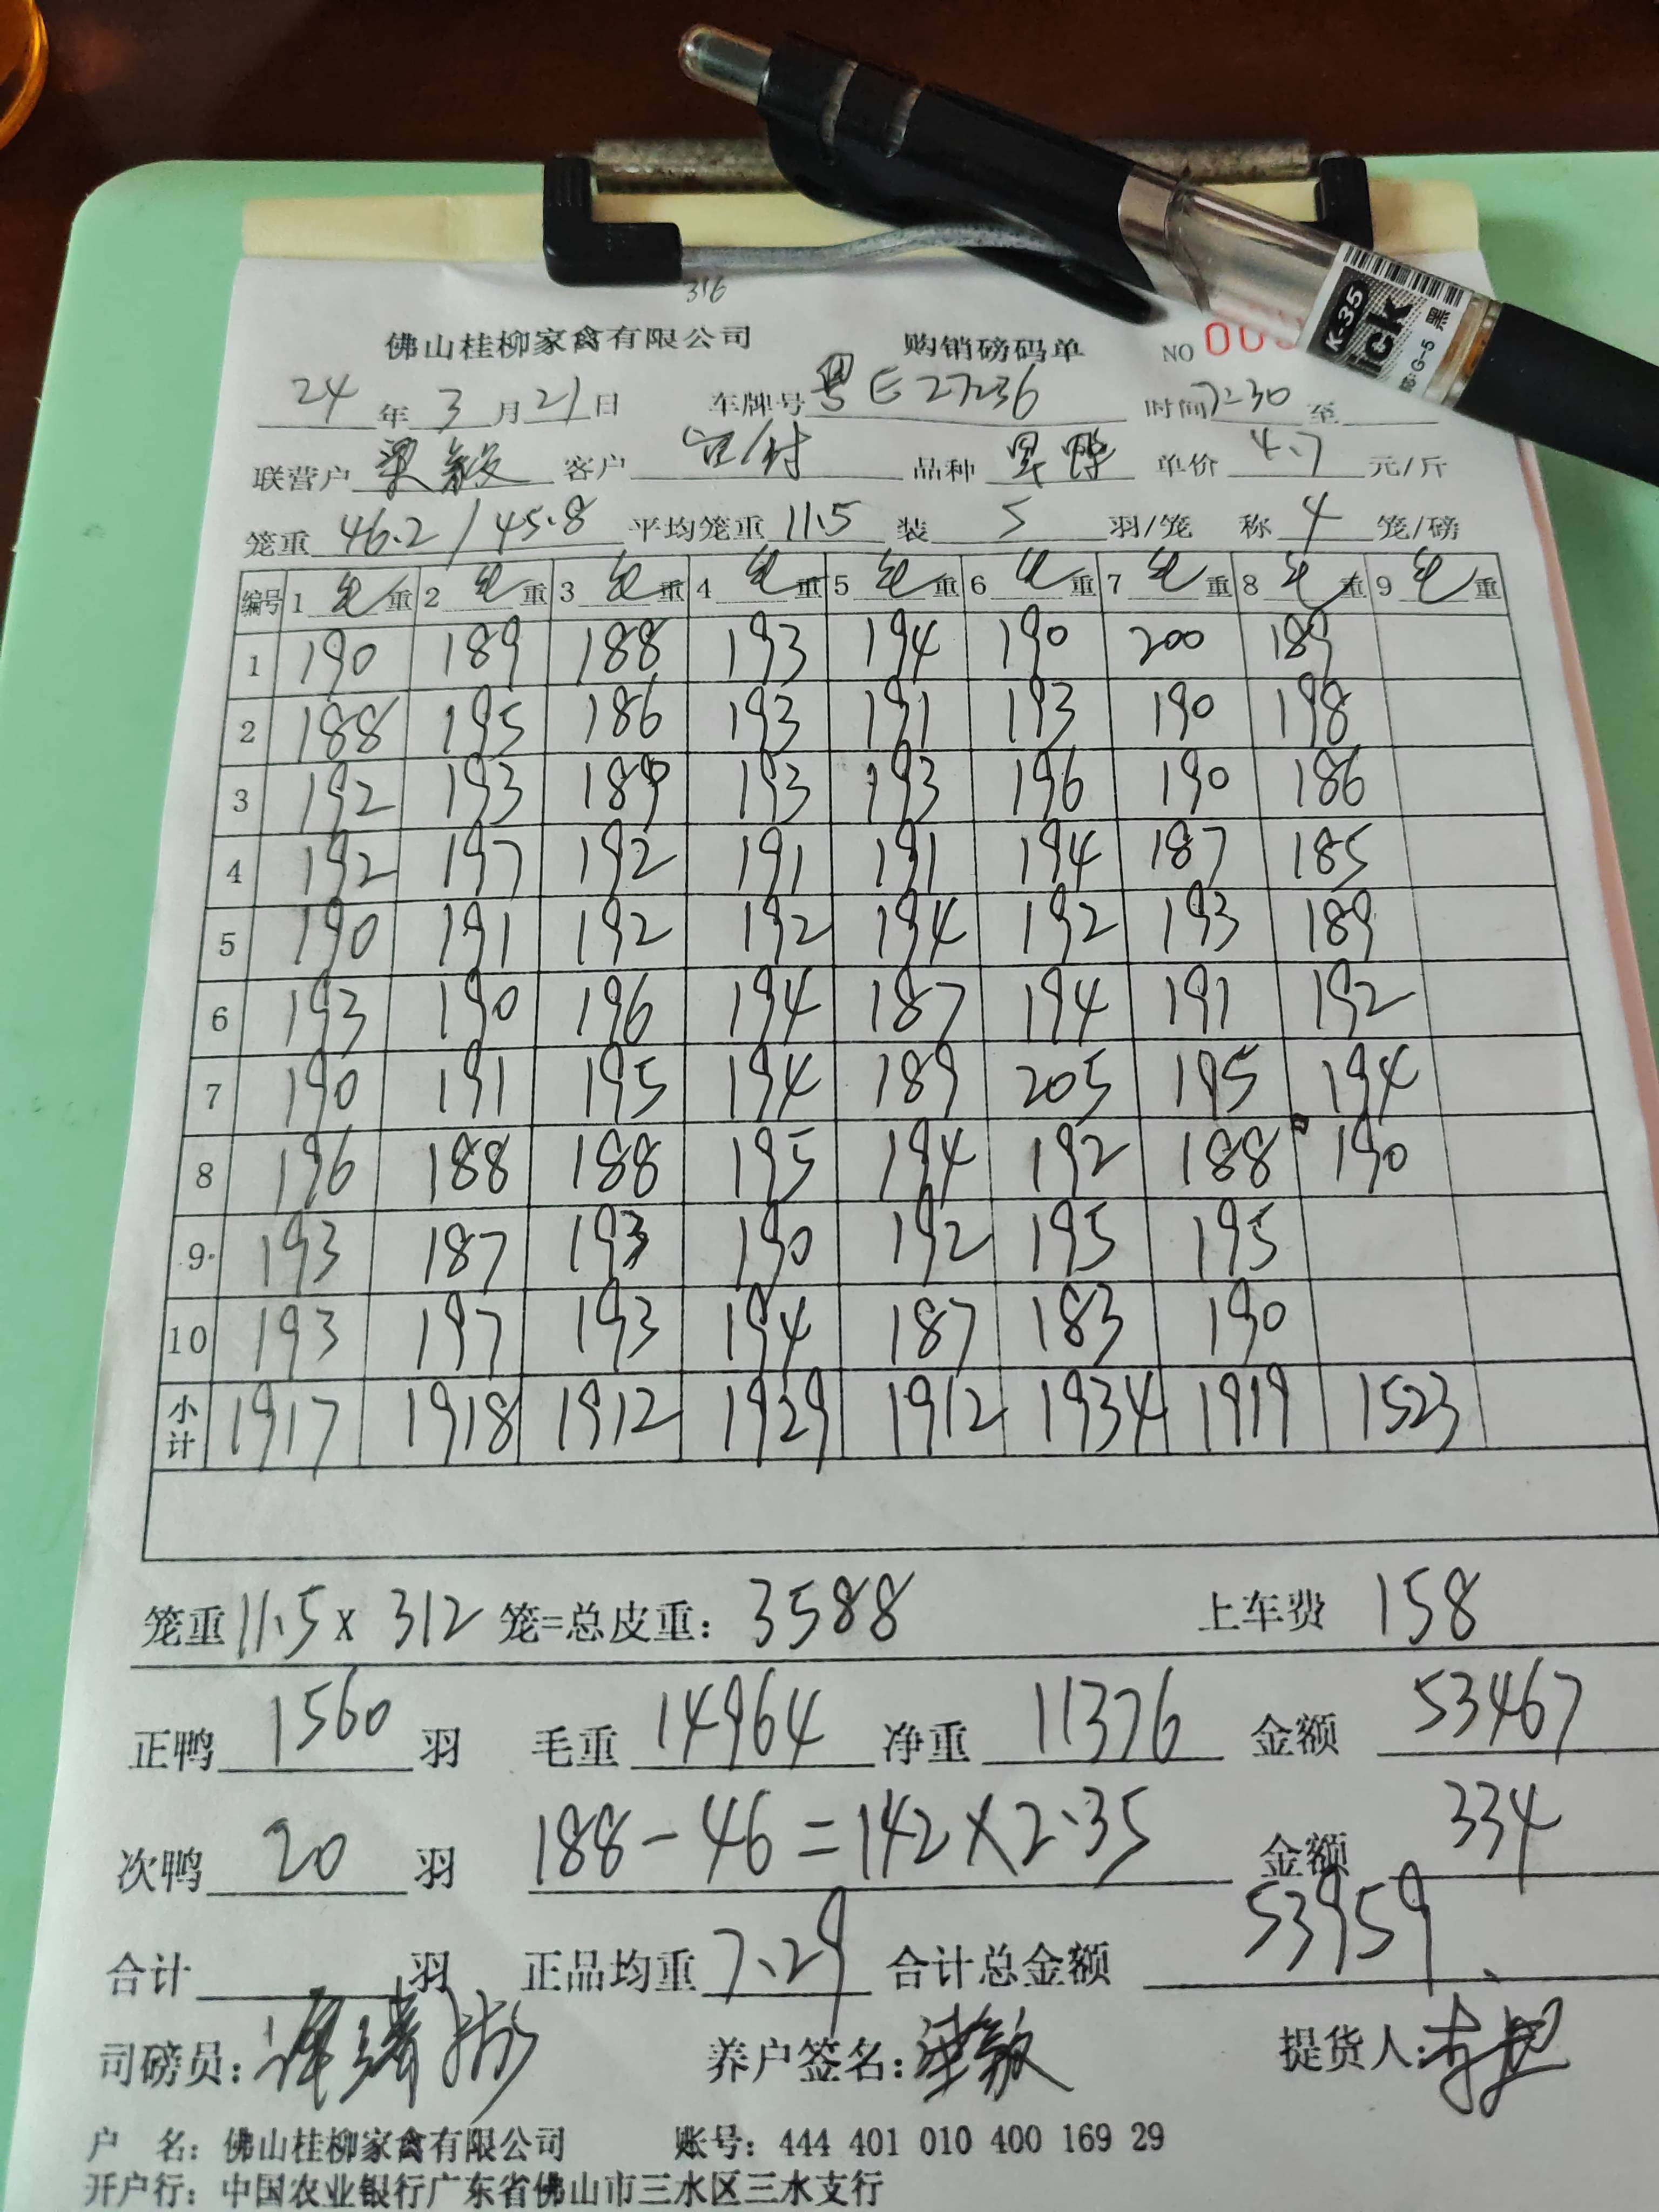 316
佛山桂柳家禽有限公司 购销磅码单 NO 00
24年3月21日 车牌号粤E27236 时间7:30至
联营户梁毅 客户 品种 单价4.7元/斤
笼重46.2/45.8 平均笼重11.5 装5羽/笼 称4笼/磅
编号 1毛重 2毛重 3毛重 4毛重 5毛重 6毛重 7毛重 8毛重 9毛重
1 190 189 188 193 194 190 200 189
2 188 195 186 193 191 193 190 198
3 192 193 189 193 193 196 190 186
4 192 197 192 191 191 194 187 185
5 190 191 192 192 194 192 193 189
6 193 190 196 194 187 194 191 192
7 190 191 195 194 189 205 195 194
8 196 188 188 195 194 192 188 190
9 193 187 193 190 192 195 195
10 193 197 193 194 187 183 190
小计 1917 1918 1912 1929 1912 1934 1919 1523
笼重11.5x312笼=总皮重:3588 上车费 158
正鸭1560羽 毛重14964 净重11376 金额53467
次鸭20羽 188-46=142×2.35 金额334
合计 羽 正品均重7.29 合计总金额53959
司磅员: 养户签名: 提货人:
户 名:佛山桂柳家禽有限公司 账号:444 401 010 400 169 29
开户行:中国农业银行广东省佛山市三水区三水支行
K-35
CK
G-5 黑